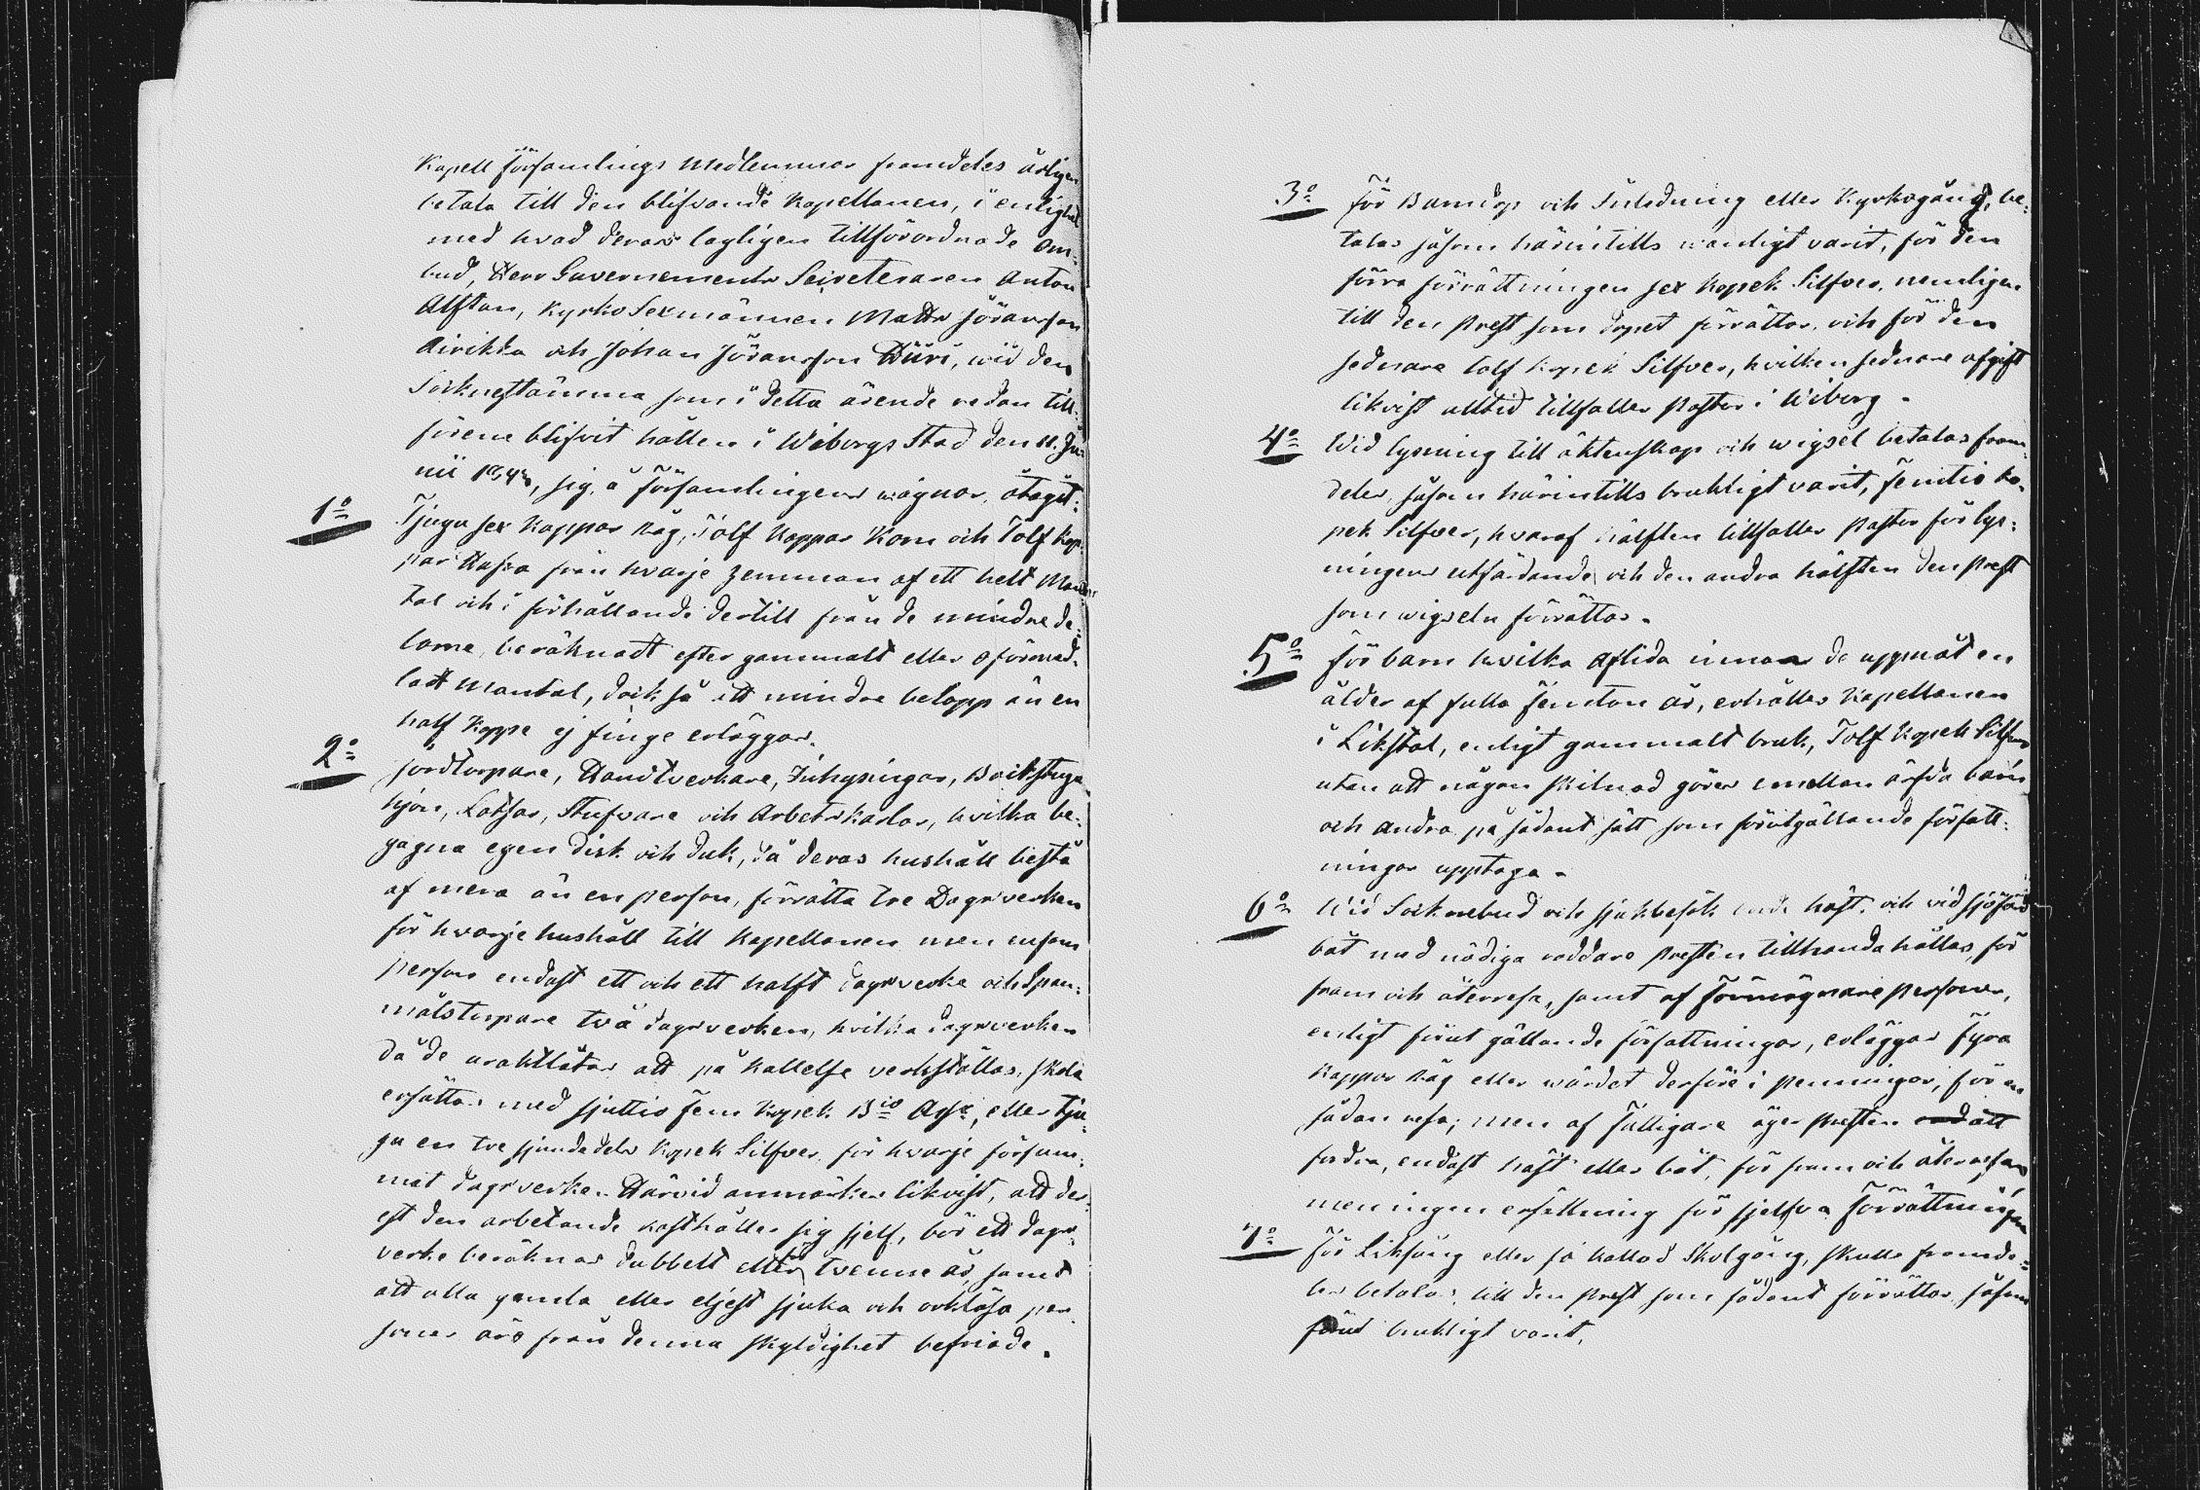 Kapell Församlings Medlemmar framdeles årligen
betala till den blifvande Kapellanen, i enlighet
med hvad deras lagligen tillförordnade Om-
bud, Herr Guvernements Secreteraren Anton
Alftan, Kyrko Sexmännen Matts Jöransson
Airikka och Johan Jöransson Hüri, wid den
Socknestämma som i detta ärende redan till-
förene blifvit hållen i Wiborgs Stad den 11. Ju-
nii 1848, sig, å Församlingens wägnar, åtagit:
1o Tjugu sex Kappar Råg, Tolf Kappar Korn och Tolf Kap-
par Hafra från hvarje Hemman af ett helt Man-
tal och i förhållande dertill från de mindre de-
larne, beräknadt efter gammalt eller oförmed-
ladt Mantal, dock så att mindre belopp än en
half Kappe ej finge erläggas.
2o Jordtorpare, Handtverkare, Inhysingar, Backstugu-
hjon, Lotsar, Stufvare och Arbetskarlar, hvilka be-
gagna egen disk och duk, då deras hushåll bestå
af mera än en person, förrätta tre Dagsverken
för hvarje hushåll till Kapellanen men ensam
person endast ett och ett halft dagsverke och Span-
målstorpare två dagsverken, hvilka dagsverken
då de uraktlåtas att på kallelse verkställas, skola
ersättas med sjuttio fem Kopek Bco Ass:, eller tju-
gu en tre sjundedels Kopek Silfver för hvarje försum-
mat dagsverke. Härvid anmärkes likvist, att der-
est den arbetande kosthåller sig sjelf, bör ett dags-
verke beräknas dubbelt eller för twenne då, samt
att alla gamla eller eljest sjuka och orklösa per-
soner äro från denna skyldighet befriade.
3o För Barndop och Inledning eller Kyrkogång, be-
talas såsom härintills wanligt varit, för den
förra förrättningen sex Kopek Silfver, nemligen
till den Prest som dopet förrättar, och för den
sednare tolf Kopek Silfver, hvilken sednare afgift
likvist alltid tillfaller Pastor i Wiborg.
4o Wid lysning till äktenskap och wigsel betalas fram-
deles, såsom härintills brukligt varit, Femtio Ko-
pek Silfver, hvaraf hälften tillfaller Pastor för lys-
ningens utfärdande och den andra hälften den Prest
som wigseln förrättar.
5o För barn hvilka aflida innan de uppnåt en
ålder af fulla Femton år, erhåller Kapellanen
i Likstol, enligt gammalt bruk, Tolf Kopek Silfver
utan att någon skilnad göres emellan ärfda barn
och andra på sådant sätt som förutgällande författ-
ningar upptaga.
6o Wid Socknebud och sjukbesök bör häst, och vid sjöfärd
båt med nödiga roddare Presten tillhanda hållas, för
fram och återresa, samt af Förmögnare personer,
enligt förut gällande författningar, erläggas Fyra
Kappar Råg eller wärdet derföre i penningar, för en
sådan resa; men af Fattigare äger Presten att
fordra, endast häst eller båt, för fram och återresan,
men ingen ersättning för sjelfva Förrättningen
7o För Liksång eller så kallad Skolgång, skulle framde-
les betalas till den Prest som sådant förrättar, såsom
förut brukligt varit.